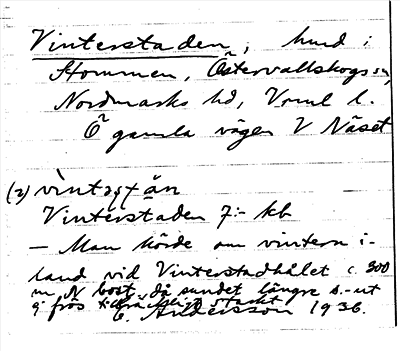 Vinterstaden, hund i
Stommen, Östervallskogs sn,
Nordmarks hd, Vrml l.
Ö gamla vägen V Näset
(2) vìntəṣtän
Vinterstaden 7:- kb
— Man körde om vintern i-
land vid Vinterstadhålet c. 300
m N bost. då sundet längre s.-ut
ej frös tillräckligt starkt
E. Andersson 1936.